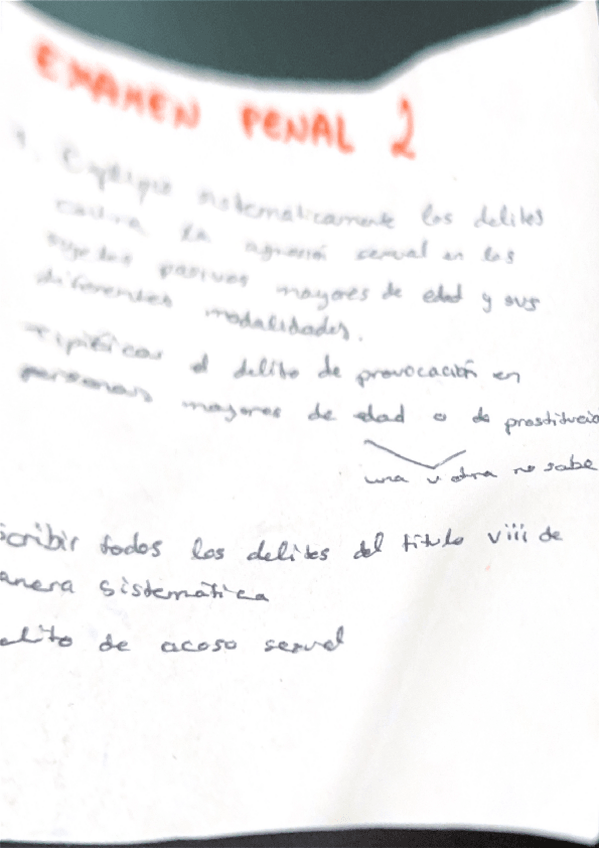 EXAMEN PENAL 2
1. Explique sistematicamente los delitos
contra la agresión sexual en los
sujetos pasivos mayores de edad y sus
diferentes modalidades.
Tipificar el delito de provocación en
personas mayores de edad o de prostitucio
una u otra no sabe
scribir todos los delitos del titulo viii de
anera sistemática
elito de acoso sexual